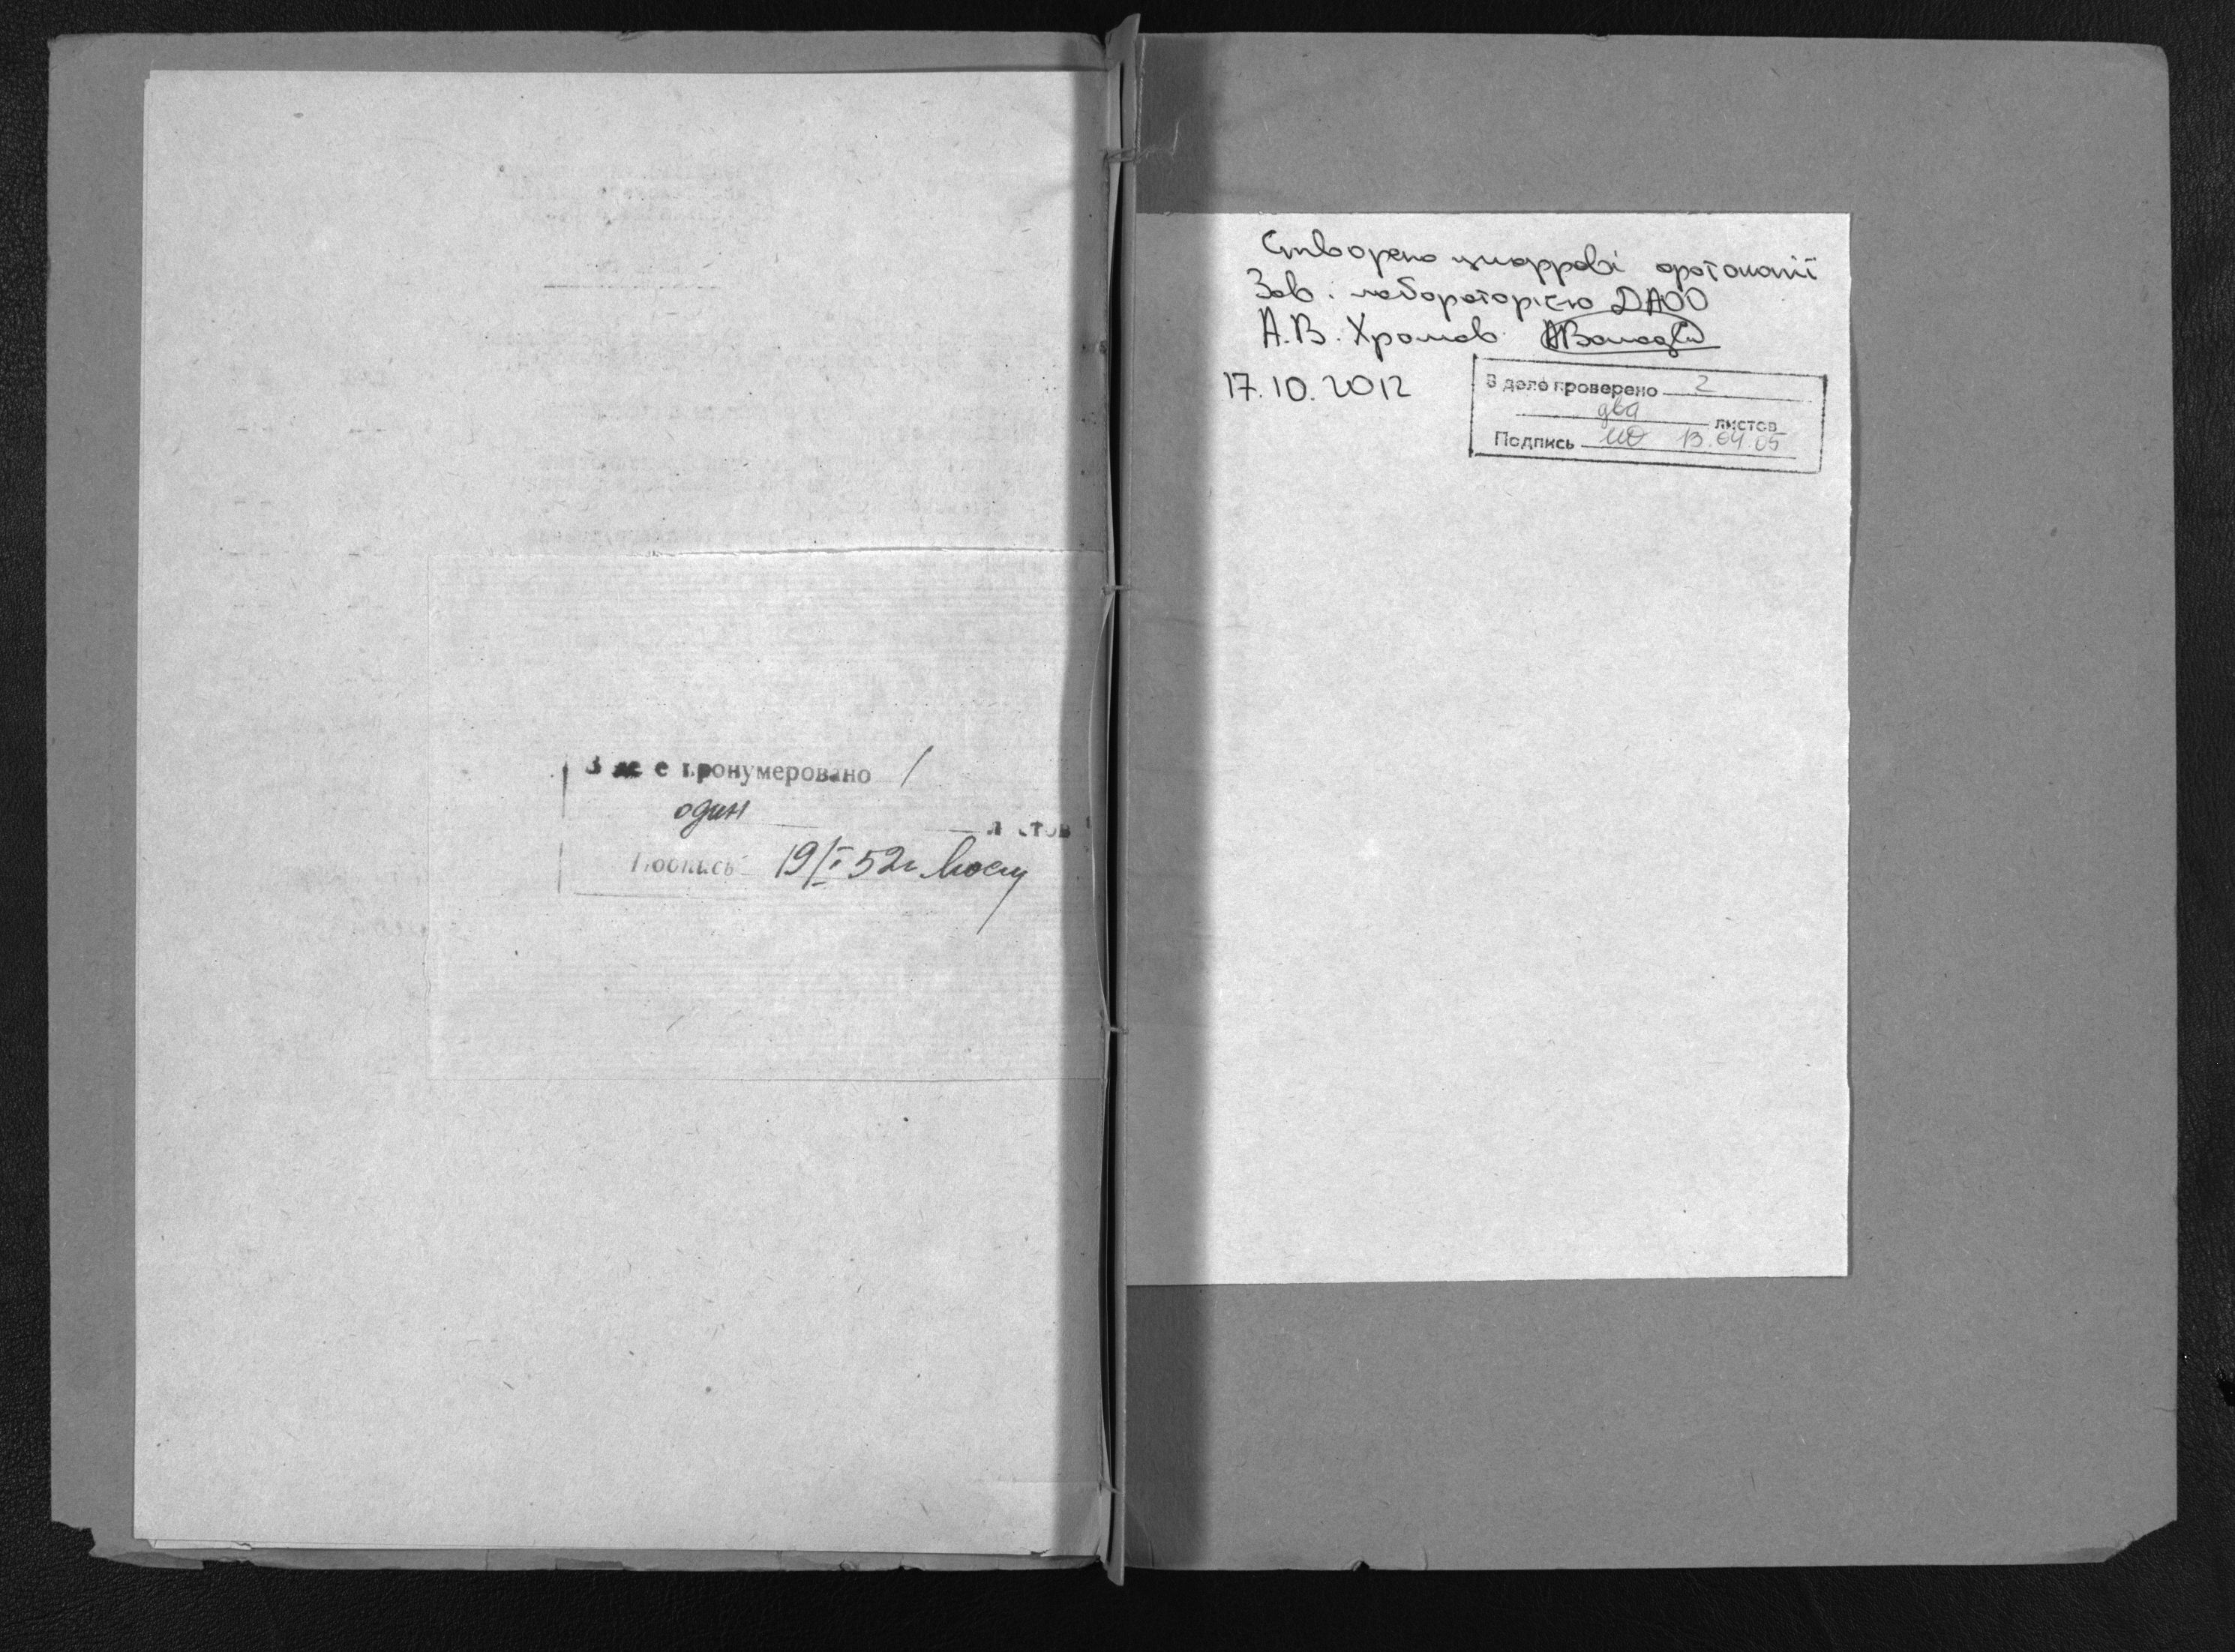 В деле пронумеровано 1
один
листов
Подпись 19/I 52г
Створено цифрові фотокопії
Зав. лабораторією ДАОО
А.В. Хромов
17.10.2012
В деле проверено 2
два листов
Подпись 13.04.05